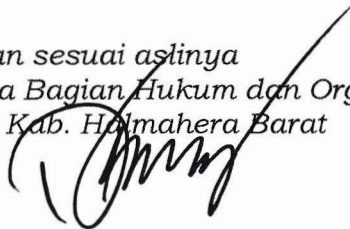 an sesuai aslinya
a Bagian Hukum dan Org
Kab. Halmahera Barat